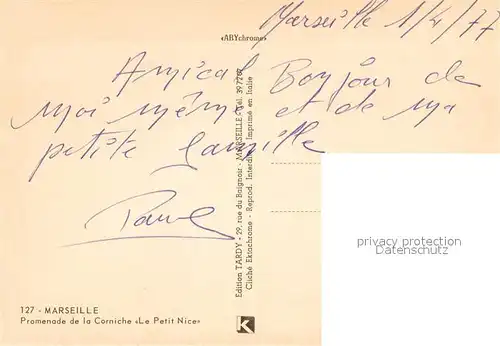 Marseille 1/4/77
«ABYchrome»
Amical Bonjour de
moi même et de ma
petite famille
Paul
Edition TARDY - 29, rue du Baignoir - MARSEILLE - Tél. 39 77 62
Cliché Ektachrome - Reprod. Interdite Imprimé en Italie
127 - MARSEILLE
Promenade de la Corniche «Le Petit Nice»
K
property protection
ansichtskarten-center